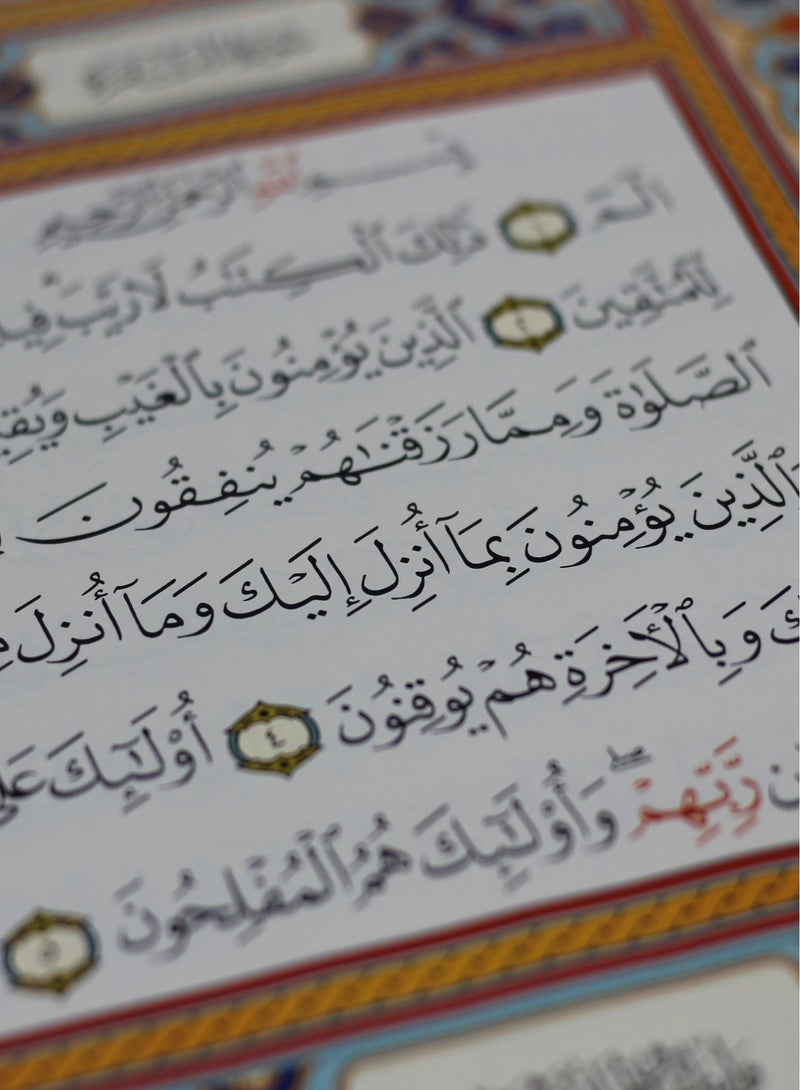 بِسْمِ ٱللَّهِ ٱلرَّحْمَٰنِ ٱلرَّحِيمِ
الٓمٓ ١ ذَٰلِكَ ٱلْكِتَٰبُ لَا رَيْبَ
لِّلْمُتَّقِينَ ٢ ٱلَّذِينَ يُؤْمِنُونَ بِٱلْغَيْبِ
ٱلصَّلَوٰةَ وَمِمَّا رَزَقْنَٰهُمْ يُنفِقُونَ
وَٱلَّذِينَ يُؤْمِنُونَ بِمَآ أُنزِلَ إِلَيْكَ وَمَآ أُنزِلَ
وَبِٱلْأَخِرَةِ هُمْ يُوقِنُونَ ٤ أُو۟لَٰٓئِكَ
رَّبِّهِمْ ۖ وَأُو۟لَٰٓئِكَ هُمُ ٱلْمُفْلِحُونَ ٥